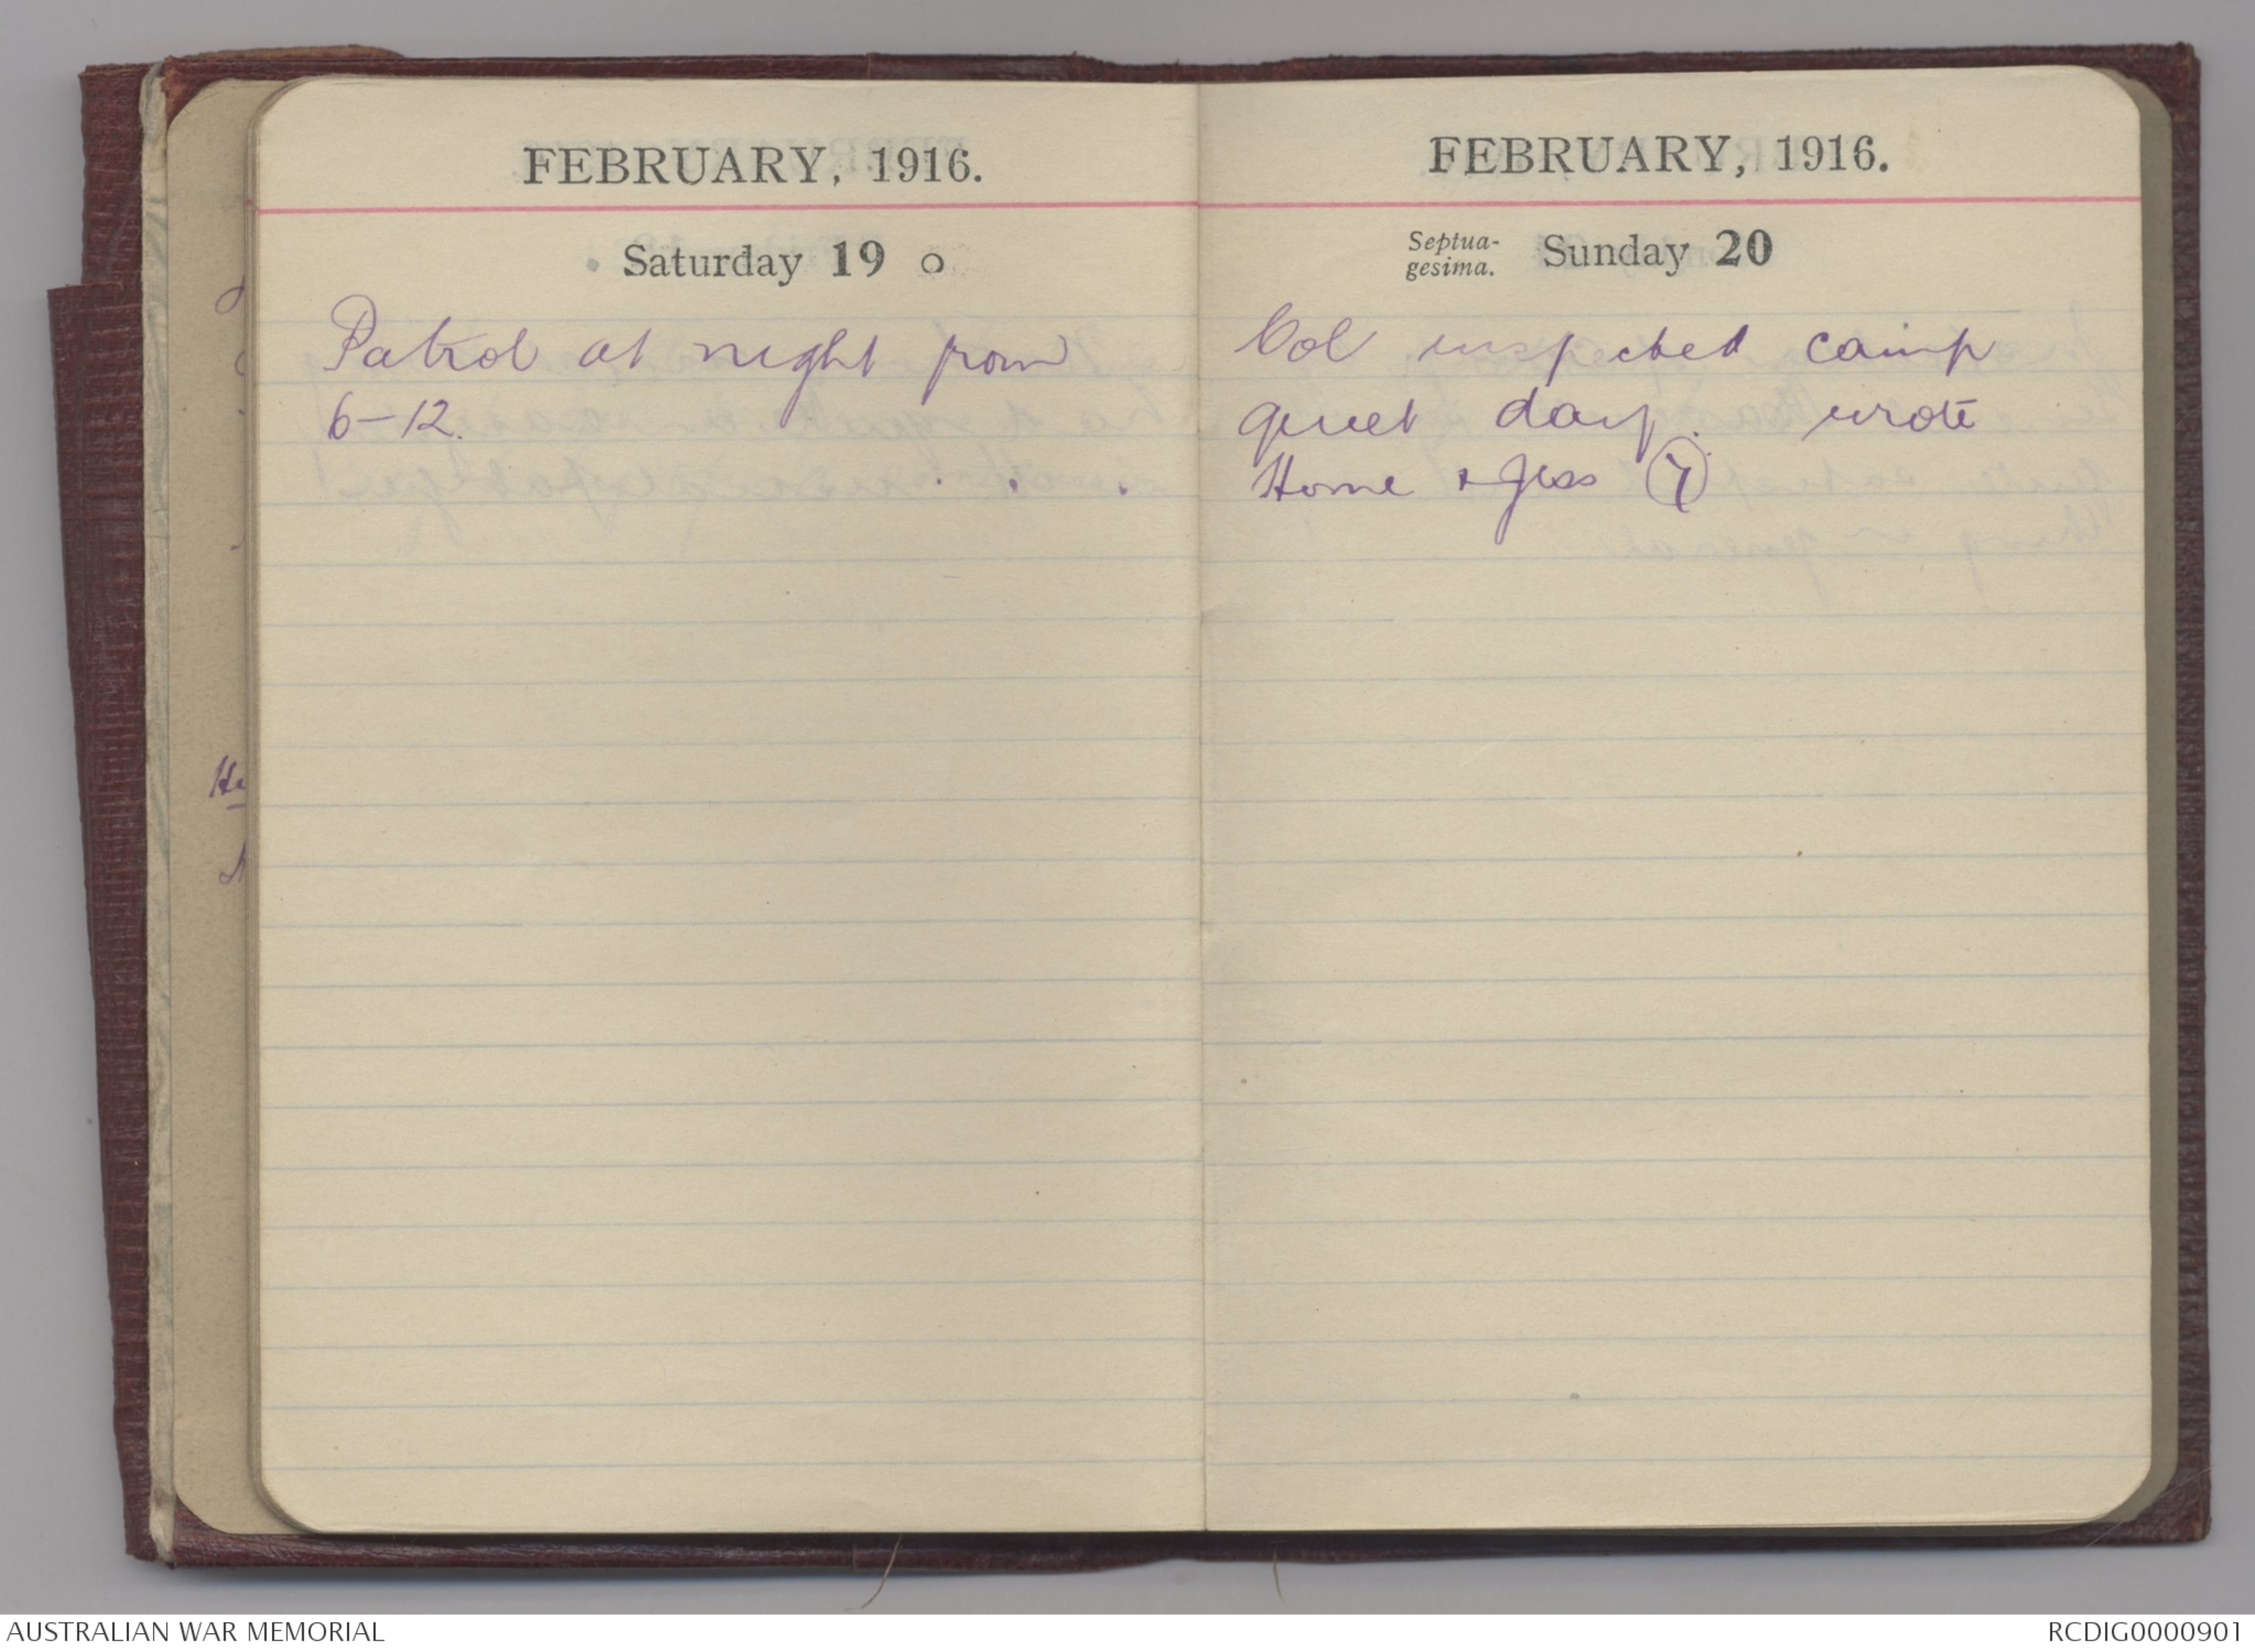 FEBRUARY, 1916.
Saturday 19 o
Patrol at night from
6-12.
FEBRUARY, 1916.
Septua-
gesima. Sunday 20
Col inspected camp
quiet day. wrote
Home & Jess (7)
AUSTRALIAN WAR MEMORIAL
RCDIG0000901